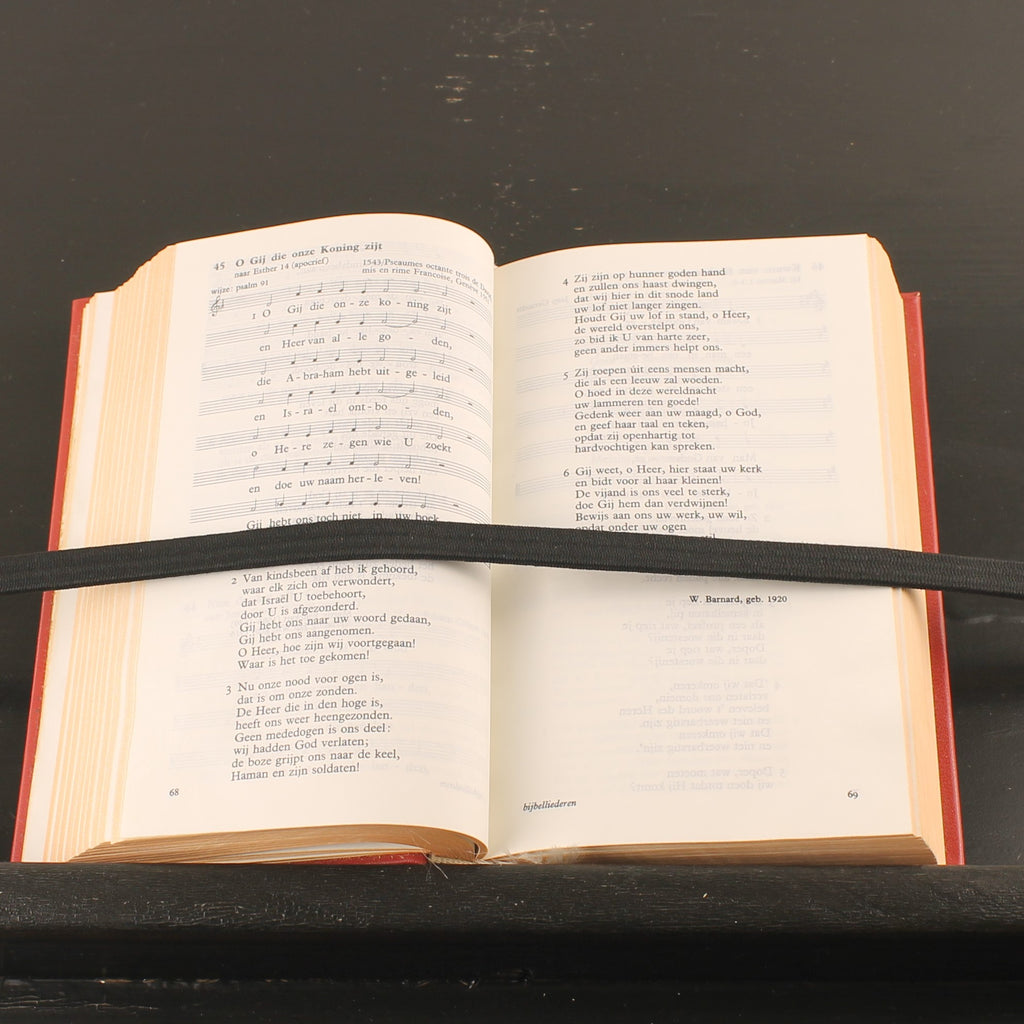 45 O Gij die onze Koning zijt
naar Esther 14 (apocrief)
1543/Pseaumes octante trois de
mis en rime Francoise, Genève
wijze: psalm 91
1 O Gij die on-ze ko-ning zijt
en Heer van al-le go-den,
die A-bra-ham hebt uit-ge-leid
en Is-ra-el ont-bo-den,
o He-re ze-gen wie U zoekt
en doe uw naam her-le-ven!
Gij hebt ons toch niet in uw boek
2 Van kindsbeen af heb ik gehoord,
waar elk zich om verwondert,
dat Israël U toebehoort,
door U is afgezonderd.
Gij hebt ons naar uw woord gedaan,
Gij hebt ons aangenomen.
O Heer, hoe zijn wij voortgegaan!
Waar is het toe gekomen!
3 Nu onze nood voor ogen is,
dat is om onze zonden.
De Heer die in den hoge is,
heeft ons weer heengezonden.
Geen mededogen is ons deel:
wij hadden God verlaten;
de boze grijpt ons naar de keel,
Haman en zijn soldaten!
68
4 Zij zijn op hunner goden hand
en zullen ons haast dwingen,
dat wij hier in dit snode land
uw lof niet langer zingen.
Houdt Gij uw lof in stand, o Heer,
de wereld overstelpt ons,
zo bid ik U van harte zeer,
geen ander immers helpt ons.
5 Zij roepen úit eens mensen macht,
die als een leeuw zal woeden.
O hoed in deze wereldnacht
uw lammeren ten goede!
Gedenk weer aan uw maagd, o God,
en geef haar taal en teken,
opdat zij openhartig tot
hardvochtigen kan spreken.
6 Gij weet, o Heer, hier staat uw kerk
en bidt voor al haar kleinen!
De vijand is ons veel te sterk,
doe Gij hem dan verdwijnen!
Bewijs aan ons uw werk, uw wil,
opdat onder uw ogen
W. Barnard, geb. 1920
bijbelliederen
69